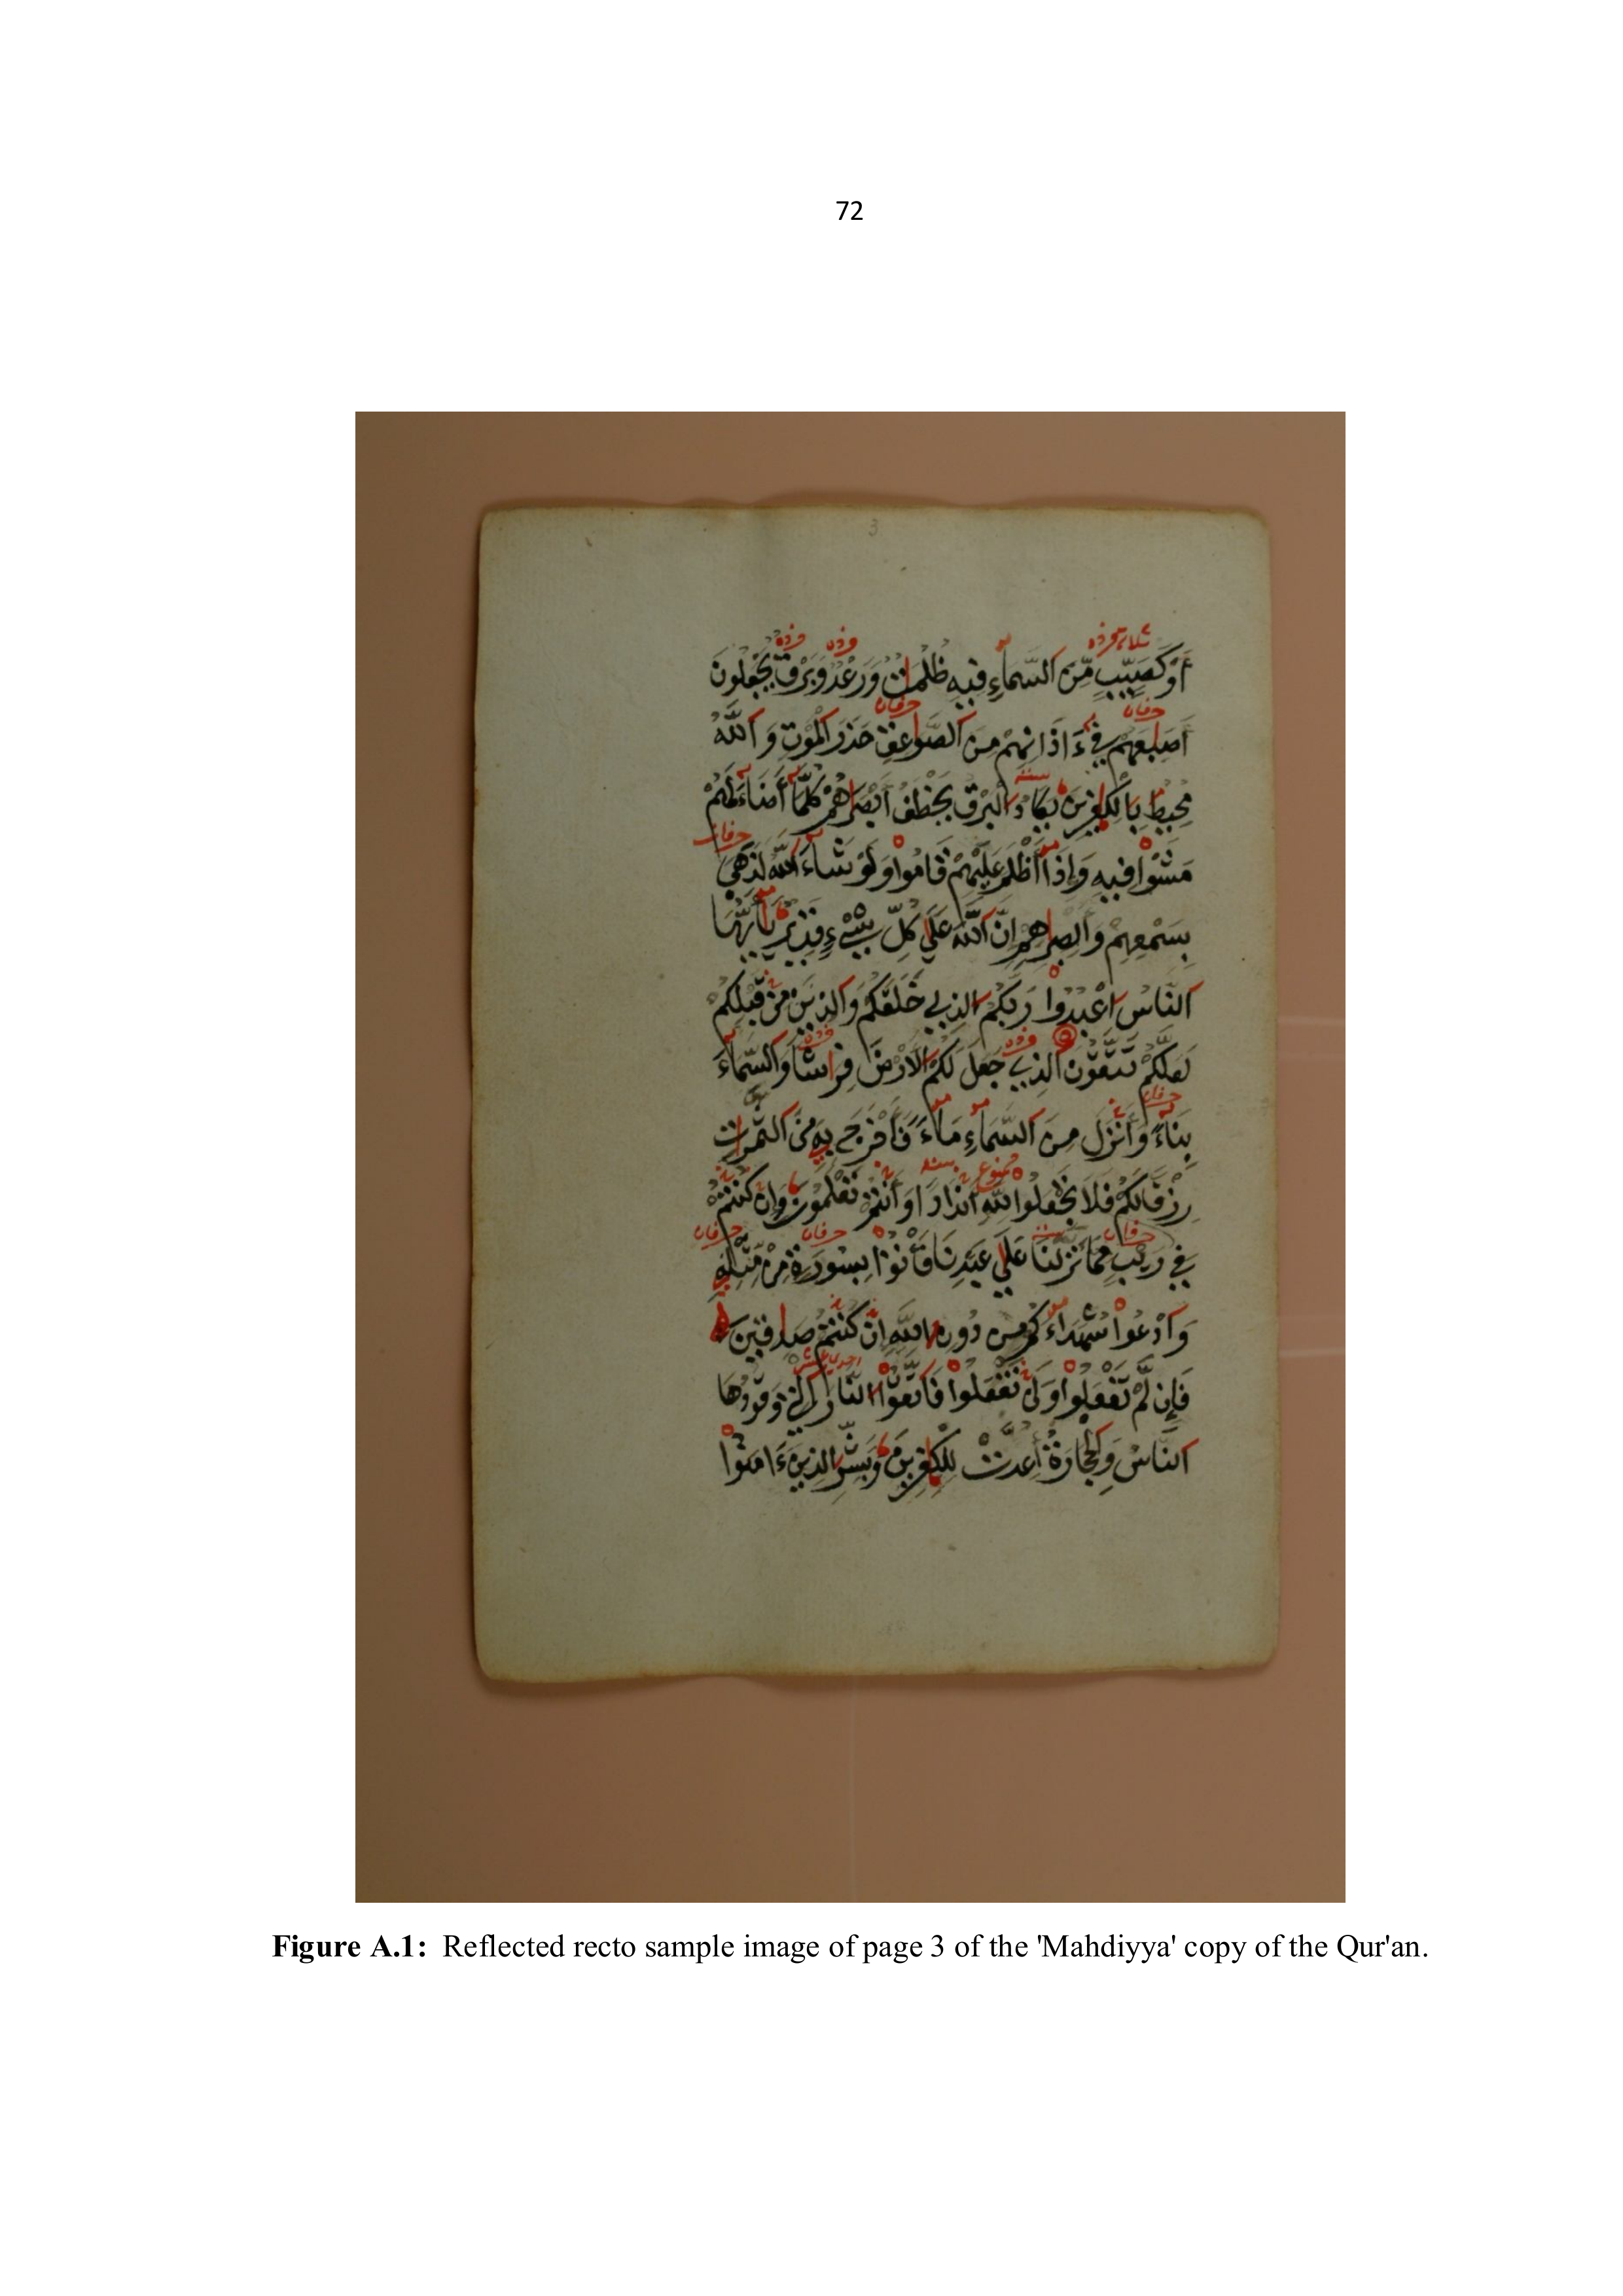 72
3
أَوْ كَصَيِّبٍ مِّنَ السَّمَاءِ فِيهِ ظُلُمَٰتٌ وَرَعْدٌ وَبَرْقٌ يَجْعَلُونَ
أَصَٰبِعَهُمْ فِي ءَاذَانِهِم مِنَ الصَّوَٰعِقِ حَذَرَ الْمَوْتِ وَاللَّهُ
مُحِيطٌ بِالْكَٰفِرِينَ يَكَادُ الْبَرْقُ يَخْطَفُ أَبْصَٰرَهُمْ كُلَّمَا أَضَاءَ لَهُمْ
مَشَوْا فِيهِ وَإِذَا أَظْلَمَ عَلَيْهِمْ قَامُوا وَلَوْ شَاءَ اللَّهُ لَذَهَبَ
بِسَمْعِهِمْ وَأَبْصَٰرِهِمْ إِنَّ اللَّهَ عَلَىٰ كُلِّ شَيْءٍ قَدِيرٌ يَٰأَيُّهَا
النَّاسُ اعْبُدُوا رَبَّكُمُ الَّذِي خَلَقَكُمْ وَالَّذِينَ مِن قَبْلِكُمْ
لَعَلَّكُمْ تَتَّقُونَ الَّذِي جَعَلَ لَكُمُ الْأَرْضَ فِرَٰشًا وَالسَّمَاءَ
بِنَاءً وَأَنزَلَ مِنَ السَّمَاءِ مَاءً فَأَخْرَجَ بِهِ مِنَ الثَّمَرَٰتِ
رِزْقًا لَكُمْ فَلَا تَجْعَلُوا لِلَّهِ أَندَادًا وَأَنتُمْ تَعْلَمُونَ وَإِن كُنتُمْ
فِي رَيْبٍ مِمَّا نَزَّلْنَا عَلَىٰ عَبْدِنَا فَأْتُوا بِسُورَةٍ مِنْ مِّثْلِهِ
وَادْعُوا شُهَدَاءَكُم مِن دُونِ اللَّهِ إِن كُنتُمْ صَٰدِقِينَ
فَإِن لَّمْ تَفْعَلُوا وَلَن تَفْعَلُوا فَاتَّقُوا النَّارَ الَّتِي وَقُودُهَا
النَّاسُ وَالْحِجَارَةُ أُعِدَّتْ لِلْكَٰفِرِينَ وَبَشِّرِ الَّذِينَ ءَامَنُوا
Figure A.1: Reflected recto sample image of page 3 of the 'Mahdiyya' copy of the Qur'an.